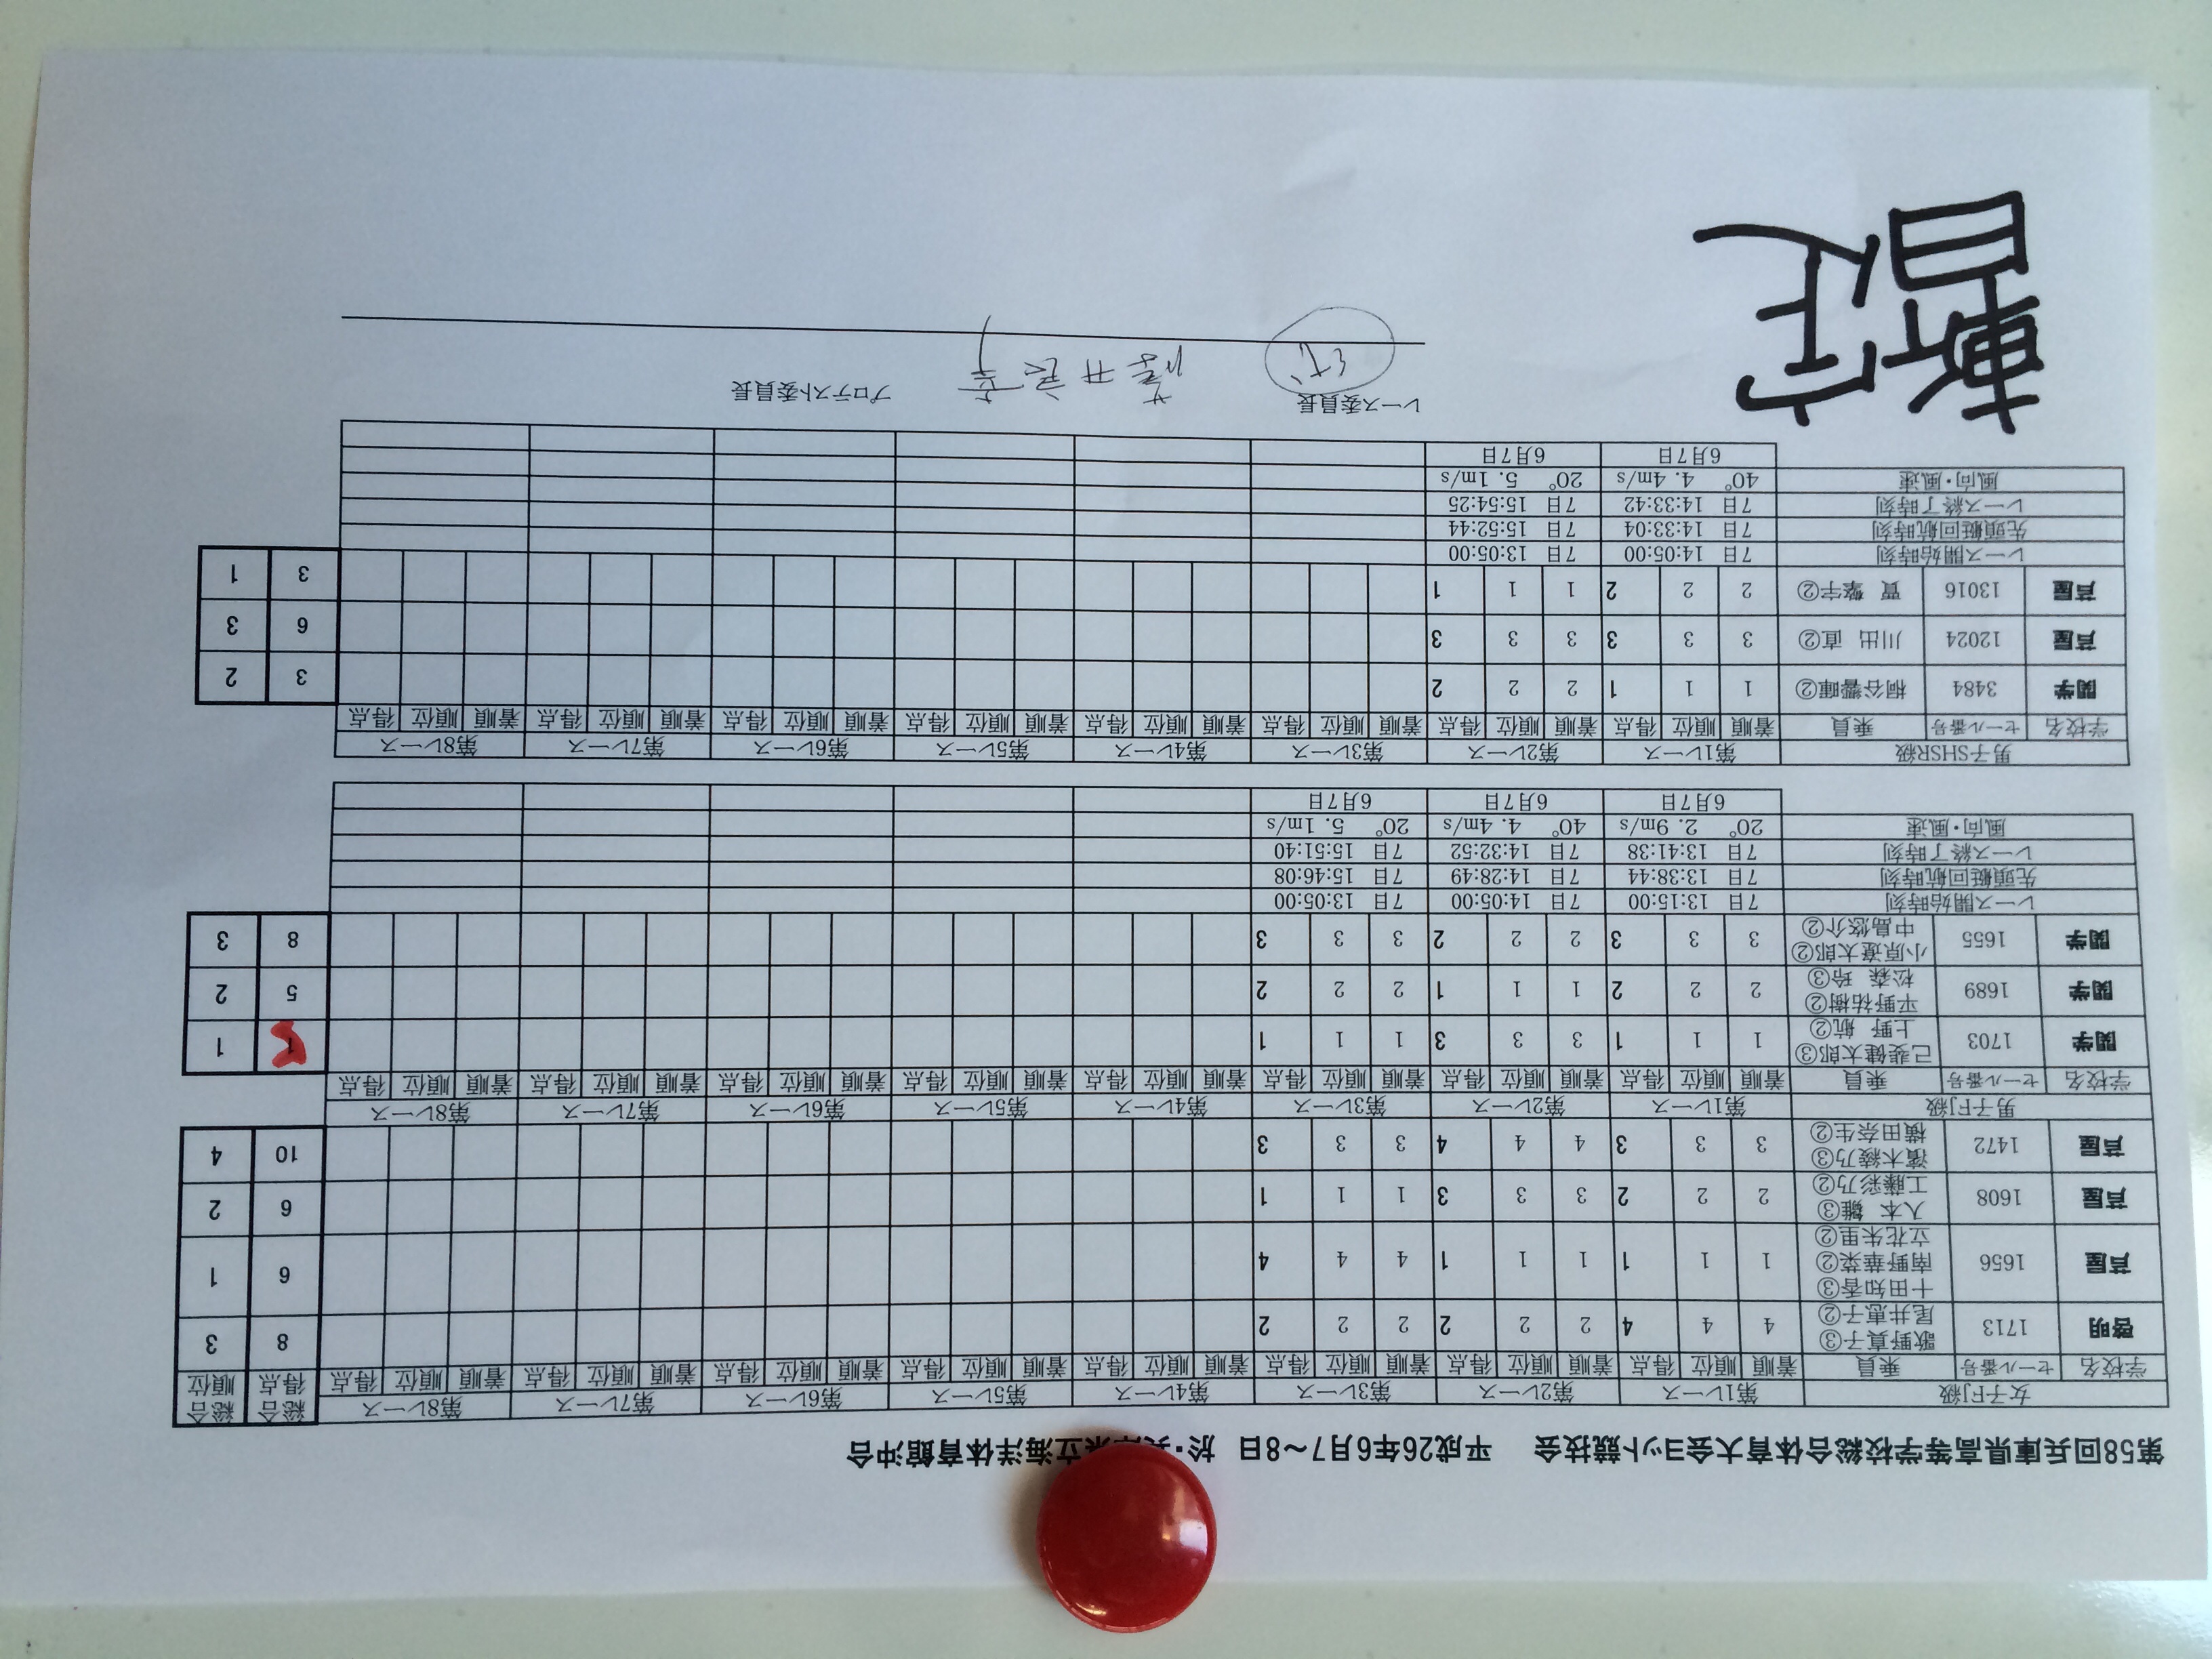 第58回兵庫県高等学校総合体育大会ヨット競技会 平成26年6月7～8日 於・兵庫県立海洋体育館沖合
女子FJ級 第1レース 第2レース 第3レース 第4レース 第5レース 第6レース 第7レース 第8レース 総合得点 総合順位
学校名 セール番号 乗員 着順 順位 得点 着順 順位 得点 着順 順位 得点 着順 順位 得点 着順 順位 得点 着順 順位 得点 着順 順位 得点 着順 順位 得点
啓明 1713 歌野真子③ 尾井恵子② 4 4 4 2 2 2 2 2 2 8 3
芦屋 1656 十田知香③ 南野華菜② 立花朱里② 1 1 1 1 1 1 4 4 4 6 1
芦屋 1608 八本 雛③ 工藤彩乃② 2 2 2 3 3 3 1 1 1 6 2
芦屋 1472 濱本綾乃③ 横田奈生② 3 3 3 4 4 4 3 3 3 10 4
男子FJ級 第1レース 第2レース 第3レース 第4レース 第5レース 第6レース 第7レース 第8レース
学校名 セール番号 乗員 着順 順位 得点 着順 順位 得点 着順 順位 得点 着順 順位 得点 着順 順位 得点 着順 順位 得点 着順 順位 得点 着順 順位 得点
関学 1703 己斐健太郎③ 上野 航② 1 1 1 3 3 3 1 1 1 5 1
関学 1689 平野祐樹② 松森 玲③ 2 2 2 1 1 1 2 2 2 5 2
関学 1655 小原遼太郎② 中島悠介② 3 3 3 2 2 2 3 3 3 8 3
レース開始時刻 7日 13:15:00 7日 14:05:00 7日 13:05:00
先頭艇回航時刻 7日 13:38:44 7日 14:28:49 7日 15:46:08
レース終了時刻 7日 13:41:38 7日 14:32:52 7日 15:51:40
風向・風速 20° 2.9m/s 40° 4.4m/s 20° 5.1m/s
6月7日 6月7日 6月7日
男子SHSR級 第1レース 第2レース 第3レース 第4レース 第5レース 第6レース 第7レース 第8レース
学校名 セール番号 乗員 着順 順位 得点 着順 順位 得点 着順 順位 得点 着順 順位 得点 着順 順位 得点 着順 順位 得点 着順 順位 得点 着順 順位 得点
関学 3484 桐谷響暉② 1 1 1 2 2 2 3 2
芦屋 12024 川出 直② 3 3 3 3 3 3 6 3
芦屋 13016 賈 擎宇② 2 2 2 1 1 1 3 1
レース開始時刻 7日 14:05:00 7日 13:05:00
先頭艇回航時刻 7日 14:33:04 7日 15:52:44
レース終了時刻 7日 14:33:42 7日 15:54:25
風向・風速 40° 4.4m/s 20° 5.1m/s
6月7日 6月7日
レース委員長 プロテスト委員長
暫定